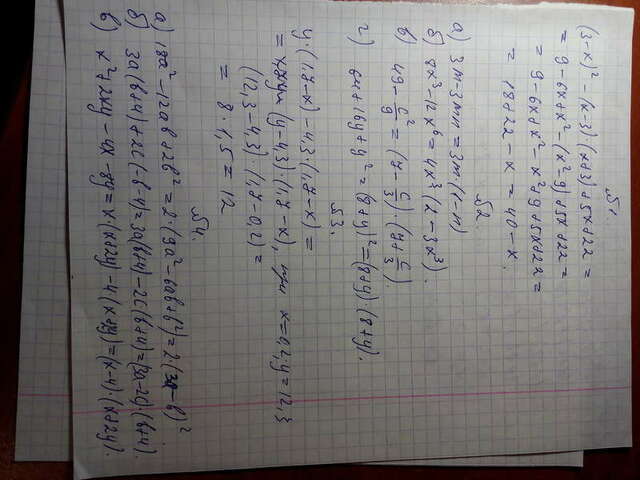 №1.
(3-x)² - (x-3)(x+3) + 5x + 22 =
= 9 - 6x + x² - (x² - 9) + 5x + 22 =
= 9 - 6x + x² - x² + 9 + 5x + 22 =
= 18 + 22 - x = 40 - x.
№2.
а) 3m - 3mn = 3m·(1-n)
б) 8x³ - 12x⁶ = 4x³(2 - 3x³).
в) 49 - c²/9 = (7 - c/3)·(7 + c/3).
г) 64 + 16y + y² = (8+y)² = (8+y)·(8+y).
№3.
y·(1,7-x) - 4,3·(1,7-x) =
= (y-4,3)(1,7-x), при x=0,2, y=12,3
(12,3-4,3)(1,7-0,2) =
= 8·1,5 = 12
№4.
а) 18a² - 12ab + 2b² = 2·(9a² - 6ab + b²) = 2·(3a-b)²
б) 3a(b+4) + 2c(-b-4) = 3a(b+4) - 2c(b+4) = (3a-2c)·(b+4).
в) x² + 2xy - 4x - 8y = x(x+2y) - 4(x+2y) = (x-4)·(x+2y).